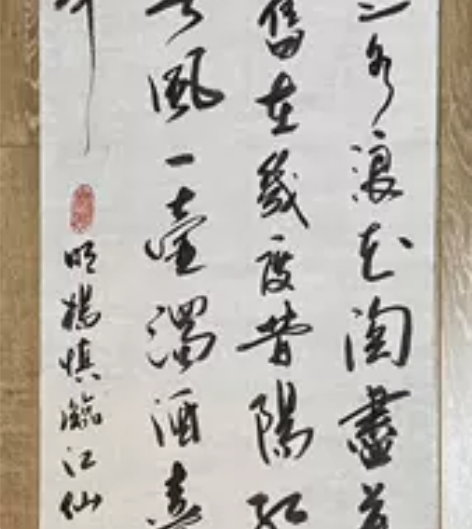 水浪花淘盡英
舊在幾度昔陽紅
風一壺濁酒喜
明楊慎臨江仙